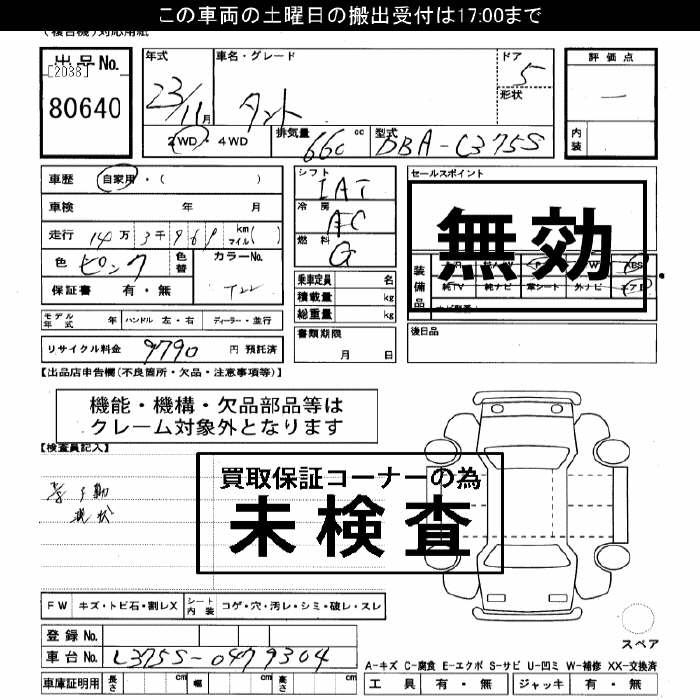 この車両の土曜日の搬出受付は17:00まで
(複合機)対応用紙
出品No.
[2038]
80640
年式
23/11月
車名・グレード
タント
ドア
5
形状
評価点
―
内装
2WD・4WD
排気量
660 cc
型式
DBA-L375S
車歴 自家用・( )
車検 年 月
走行 14万3千969 km マイル( )
色 ピンク
色替
カラーNo.
T22
保証書 有・無
シフト
IAT
冷房
AC
燃料
G
乗車定員 名
積載量 kg
総重量 kg
セールスポイント
無効
装備品
純TV 純ナビ 革シート 外ナビ
モデル年式 年 ハンドル 左・右 ディーラー・並行
書類期限
月 日
後日品
リサイクル料金 9790 円 預託済
【出品店申告欄(不良箇所・欠品・注意事項等)】
機能・機構・欠品部品等は
クレーム対象外となります
【検査員記入】
現状
買取保証コーナーの為
未検査
FW キズ・トビ石・割レX
シート内装 コゲ・穴・汚レ・シミ・破レ・スレ
登録No.
車台No. L375S-0479304
車庫証明用 長さ cm 幅 cm 高さ cm
スペア
A-キズ C-腐食 E-エクボ S-サビ U-凹ミ W-補修 XX-交換済
工具 有・無 ジャッキ 有・無